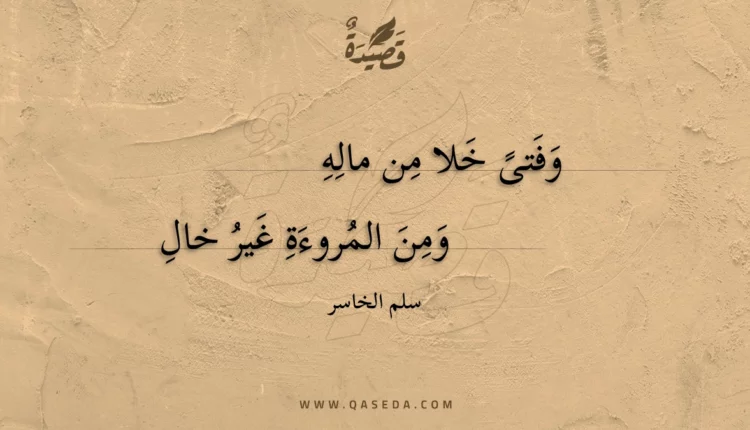 قَصِيدَةٌ
وَفَتىً خَلا مِن مالِهِ
وَمِنَ المُروءَةِ غَيرُ خالِ
سلم الخاسر
WWW.QASEDA.COM